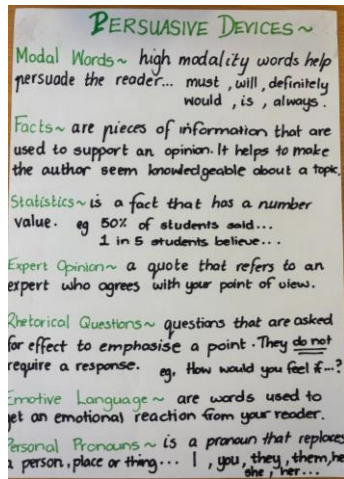 PERSUASIVE DEVICES~
Modal Words~ high modality words help
persuade the reader... must, will, definitely
would, is, always.
Facts~ are pieces of information that are
used to support an opinion. It helps to make
the author seem knowledgeable about a topic.
Statistics~ is a fact that has a number
value. eg 50% of students said...
1 in 5 students believe...
Expert Opinion~ a quote that refers to an
expert who agrees with your point of view.
Rhetorical Questions~ questions that are asked
for effect to emphasise a point. They do not
require a response. eg, How would you feel if...?
Emotive Language~ are words used to
get an emotional reaction from your reader.
Personal Pronouns~ is a pronoun that replaces
a person, place or thing... I, you, they, them, he
she, her...